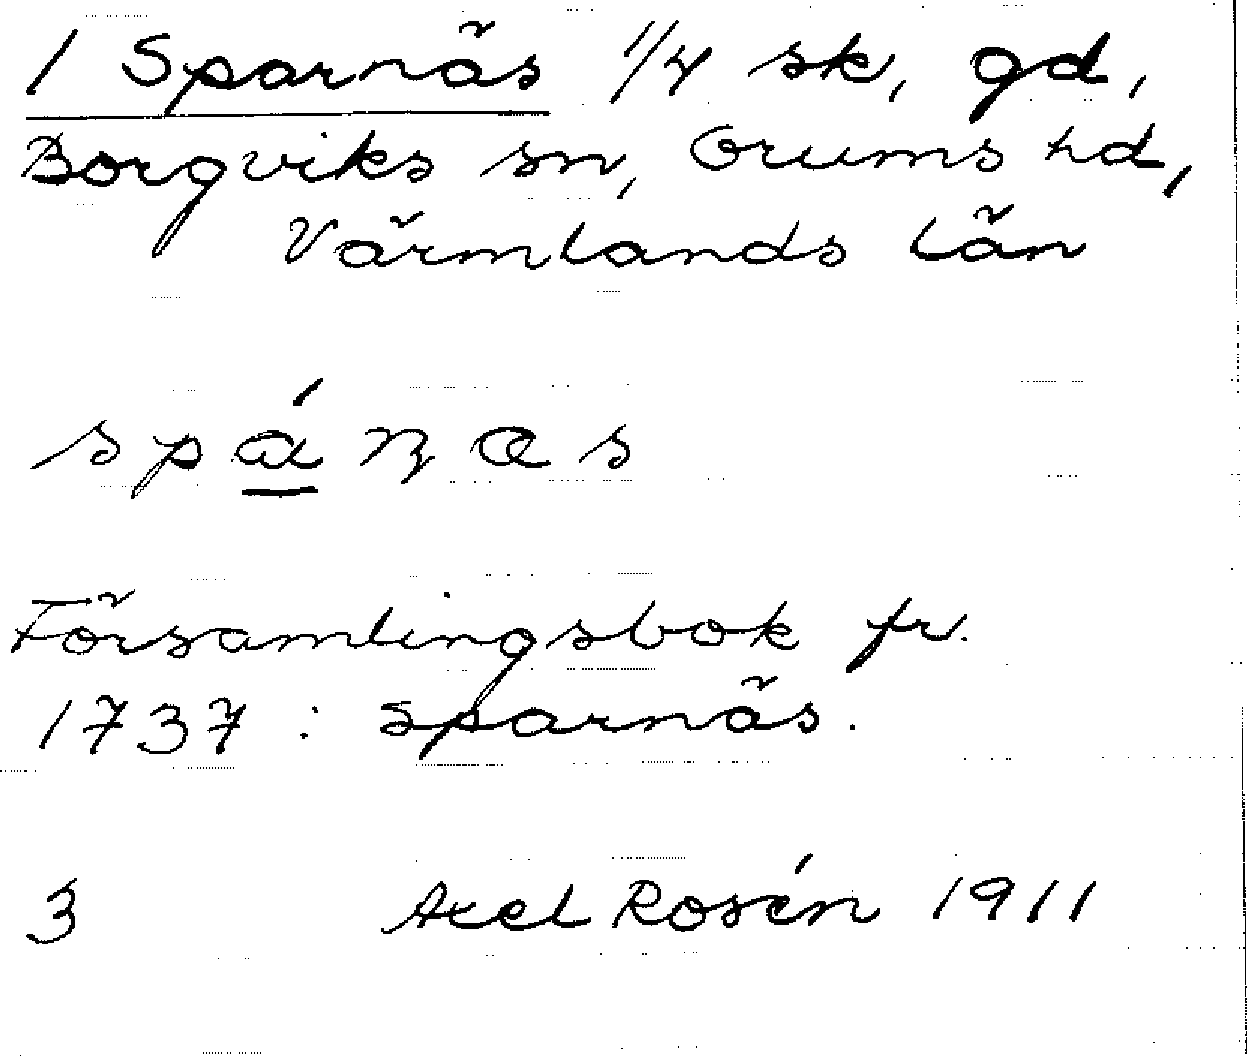 1 Sparnäs 1/4 sk, gd,
Borgviks sn, Grums hd,
Värmlands län
spá̱ɳas
Församlingsbok fr.
1737 : Sparnäs.
3 Axel Rosén 1911